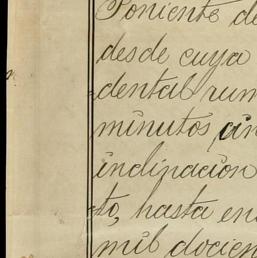 Poniente de
desde cuya
dental rum
minutos cin
inclinacion
to, hasta en
mil docien